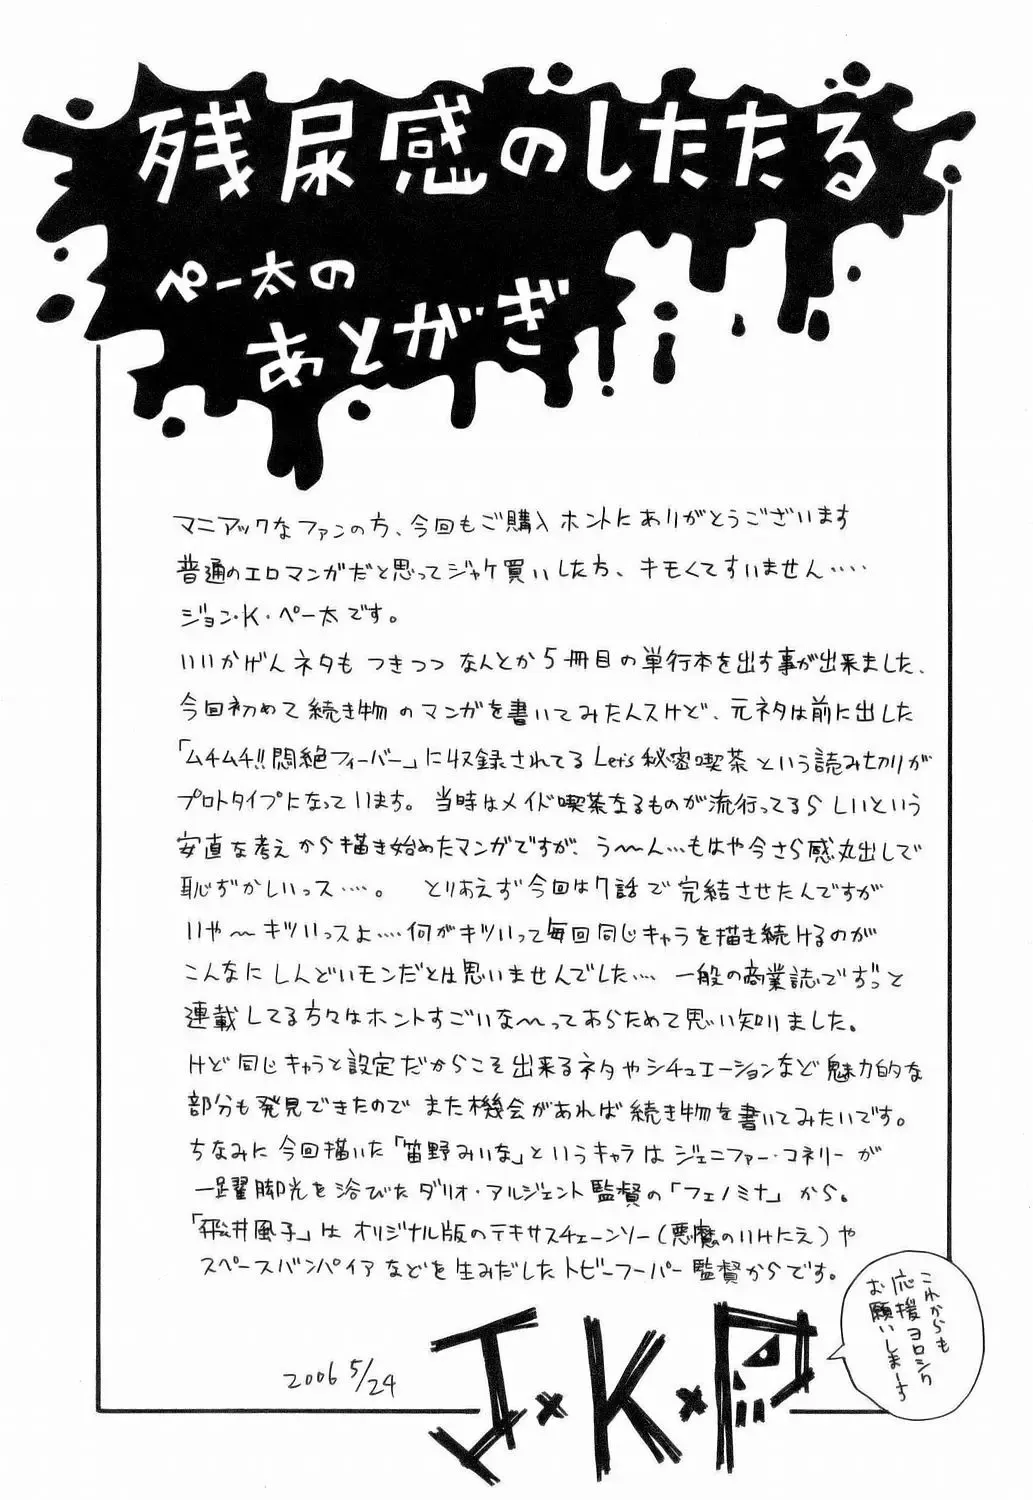 残尿感のしたたる
ぺー太の
あとがぎ
マニアックなファンの方、今回もご購入ホントにありがとうございます
普通のエロマンガだと思ってジャケ買いした方、キモくてすいません‥‥
ジョン・K・ペー太です。
いいかげんネタもつきつつなんとか5冊目の単行本を出す事が出来ました、
今回初めて続き物のマンガを書いてみたんスけど、元ネタは前に出した
「ムチムチ!!悶絶フィーバー」に収録されてるLet's秘密喫茶という読み切りが
プロトタイプになっています。当時はメイド喫茶なるものが流行ってるらしいという
安直な考えから描き始めたマンガですが、う〜ん…もはや今さら感丸出しで
恥ずかしいっス‥‥。とりあえず今回は7話で完結させたんですが
いや〜キツいっスよ‥‥何がキツいって毎回同じキャラを描き続けるのが
こんなにしんどいモンだとは思いませんでした‥‥一般の商業誌でずっと
連載してる方々はホントすごいな〜ってあらためて思い知りました。
けど同じキャラと設定だからこそ出来るネタやシチュエーションなど魅力的な
部分も発見できたのでまた機会があれば続き物を書いてみたいです。
ちなみに今回描いた「笛野みいな」というキャラはジェニファー・コネリーが
一躍脚光を浴びたダリオ・アルジェント監督の「フェノミナ」から。
「飛井風子」はオリジナル版のテキサスチェーンソー(悪魔のいけにえ)や
スペースバンパイアなどを生みだしたトビーフーパー監督からです。
これからも
応援ヨロシク
お願いしまーす
2006 5/24
J×K×P